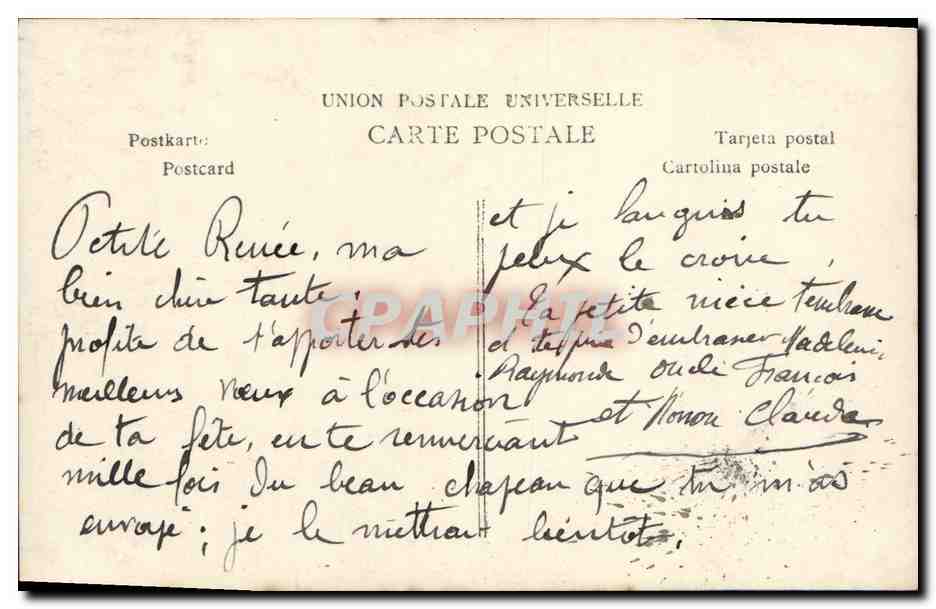 UNION POSTALE UNIVERSELLE
CARTE POSTALE
Postkarte
Postcard
Tarjeta postal
Cartolina postale
Petite Renée, ma
bien chère tante,
profite de t'apporter des
meilleurs vœux à l'occasion
de ta fête, en te remerciant
mille fois du beau chapeau que tu m'as
envoyé ; je le mettrai bientôt,
et je languis tu
peux le croire,
Ta petite nièce t'embrasse
et te prie d'embrasser Madeleine,
Raymonde oncle François
et Nonou Claude
CPAPHIL